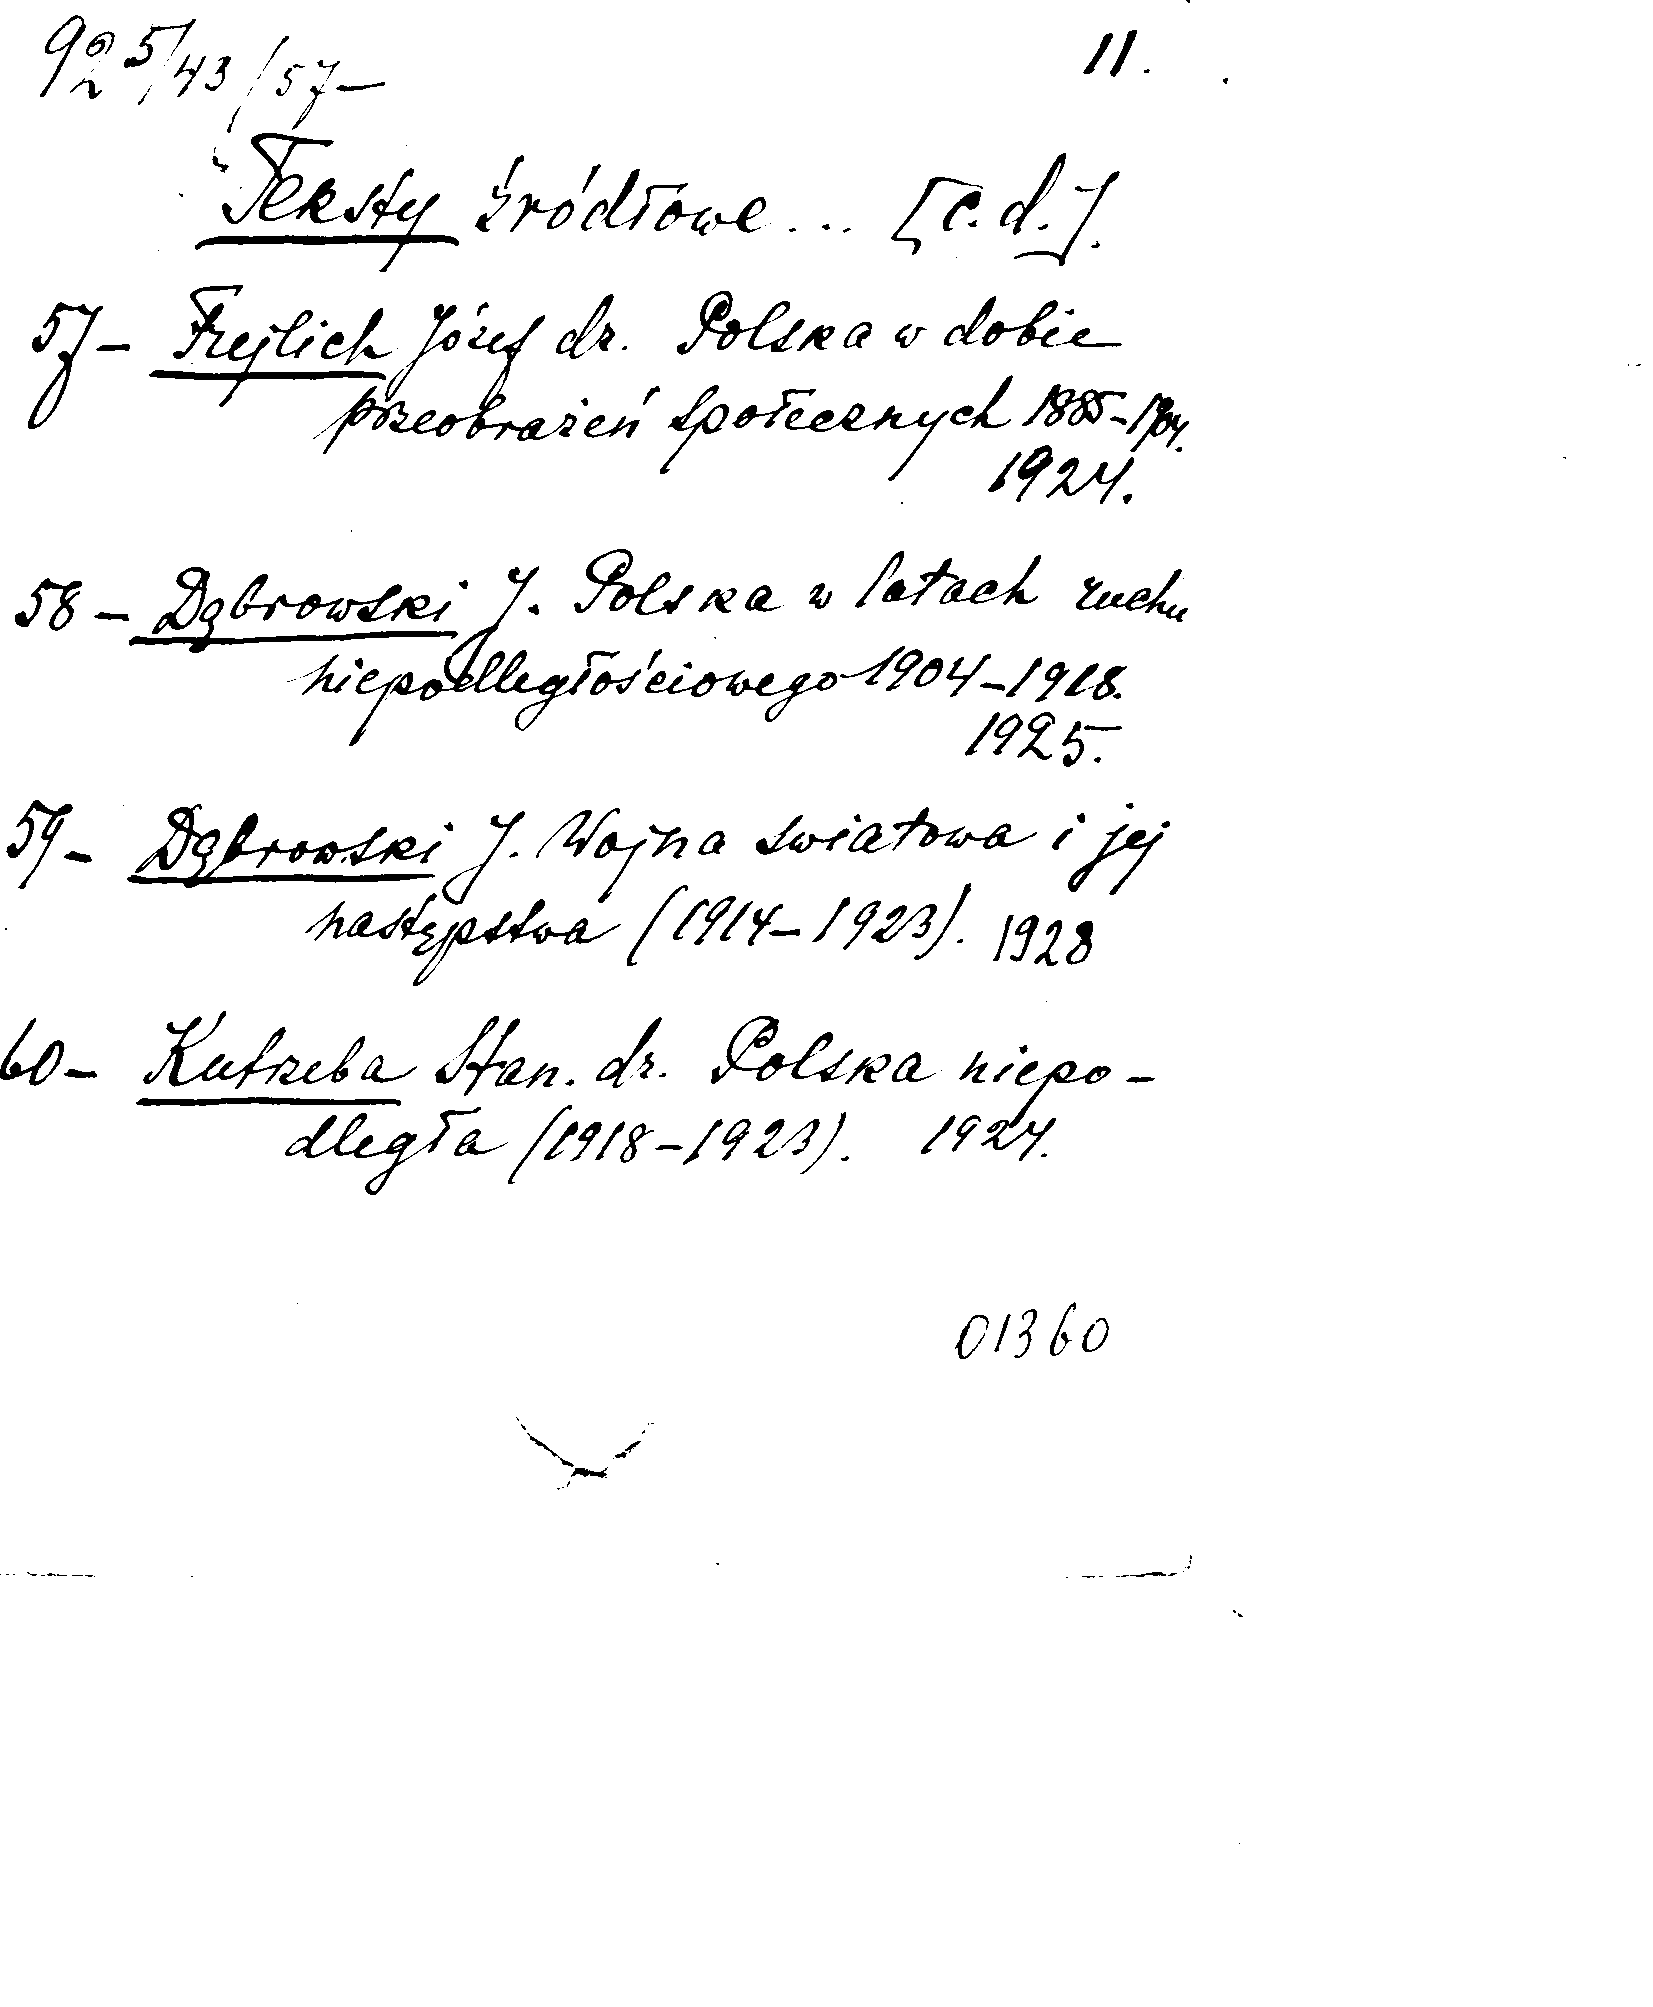 925/43/57- 11.
Teksty źródłowe... [c.d.].
57- Frejlich Józef dr. Polska w dobie
przeobrażeń społecznych 1885-1904.
1924.
58- Dąbrowski J. Polska w latach ruchu
niepodległościowego 1904-1918.
1925.
59- Dąbrowski J. Wojna światowa i jej
następstwa (1914-1923). 1928
60- Kutrzeba Stan. dr. Polska niepo-
dległa (1918-1923). 1924.
01360